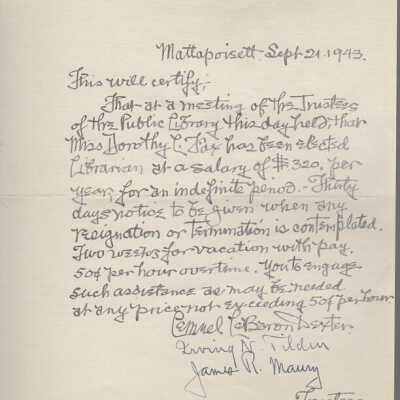 Mattapoisett. Sept 21. 1943.
This will certify:
That at a meeting of the Trustees
of the Public Library this day held, that
Miss Dorothy L. Fax has been elected
Librarian at a salary of $320. per
year, for an indefinite period. - Thirty
days notice to be given when any
resignation or termination is contemplated.
Two weeks for vacation with pay.
50¢ per hour overtime. You to engage
such assistance as may be needed
at any price not exceeding 50¢ per hour
Lemuel LeBaron Dexter
Irving N. Tilden
James R. Maury
Trustees